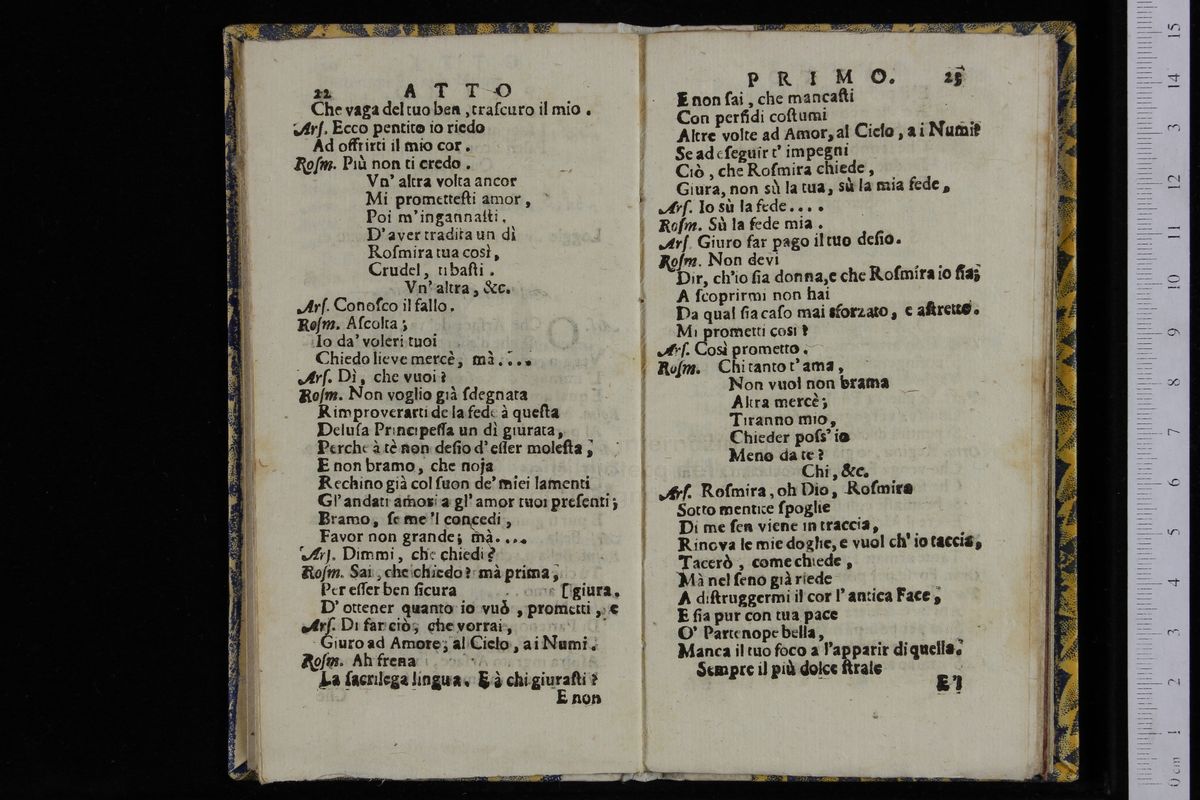 22 ATTO
Che vaga del tuo ben, traſcuro il mio.
Arſ. Ecco pentito io riedo
Ad offrirti il mio cor.
Roſm. Più non ti credo.
Vn' altra volta ancor
Mi prometteſti amor,
Poi m'ingannaſti.
D'aver tradita un dì
Roſmira tua così,
Crudel, ti baſti.
Vn' altra, &c.
Arſ. Conoſco il fallo.
Roſm. Aſcolta;
Io da' voleri tuoi
Chiedo lieve mercè, mà....
Arſ. Dì, che vuoi?
Roſm. Non voglio già ſdegnata
Rimproverarti de la fede à queſta
Deluſa Principeſſa un dì giurata,
Perche à tè non deſio d'eſſer moleſta;
E non bramo, che noja
Rechino già col ſuon de' miei lamenti
Gl' andati amori a gl' amor tuoi preſenti;
Bramo, ſe me 'l concedi,
Favor non grande; mà....
Arſ. Dimmi, che chiedi?
Roſm. Sai, che chiedo? mà prima,
Per eſſer ben ſicura [giura.
D' ottener quanto io vuò, prometti, e
Arſ. Di far ciò, che vorrai,
Giuro ad Amore, al Cielo, a i Numi.
Roſm. Ah frena
La ſacrilega lingua. E à chi giuraſti?
E non
PRIMO. 23
E non ſai, che mancaſti
Con perfidi coſtumi
Altre volte ad Amor, al Cielo, a i Numi?
Se ad eſeguir t' impegni
Ciò, che Roſmira chiede,
Giura, non sù la tua, sù la mia fede,
Arſ. Io sù la fede....
Roſm. Sù la fede mia.
Arſ. Giuro far pago il tuo deſio.
Roſm. Non devi
Dir, ch'io ſia donna, e che Roſmira io ſia;
A ſcoprirmi non hai
Da qual ſia caſo mai sforzato, e aſtretto.
Mi prometti così?
Arſ. Così prometto.
Roſm. Chi tanto t'ama,
Non vuol non brama
Altra mercè;
Tiranno mio,
Chieder poſs' io
Meno da te?
Chi, &c.
Arſ. Roſmira, oh Dio, Roſmira
Sotto mentite ſpoglie
Di me ſen viene in traccia,
Rinova le mie doglie, e vuol ch' io taccia;
Tacerò, come chiede,
Mà nel ſeno già riede
A diſtruggermi il cor l' antica Face;
E ſia pur con tua pace
O' Partenope bella,
Manca il tuo foco a l'apparir di quella.
Sempre il più dolce ſtrale
E'l